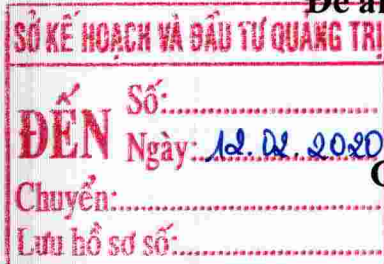 Đề á
SỞ KẾ HOẠCH VÀ ĐẦU TƯ QUẢNG TRỊ
ĐẾN
Số:
Ngày: 12.02.2020
Chuyển:
Lưu hồ sơ số: